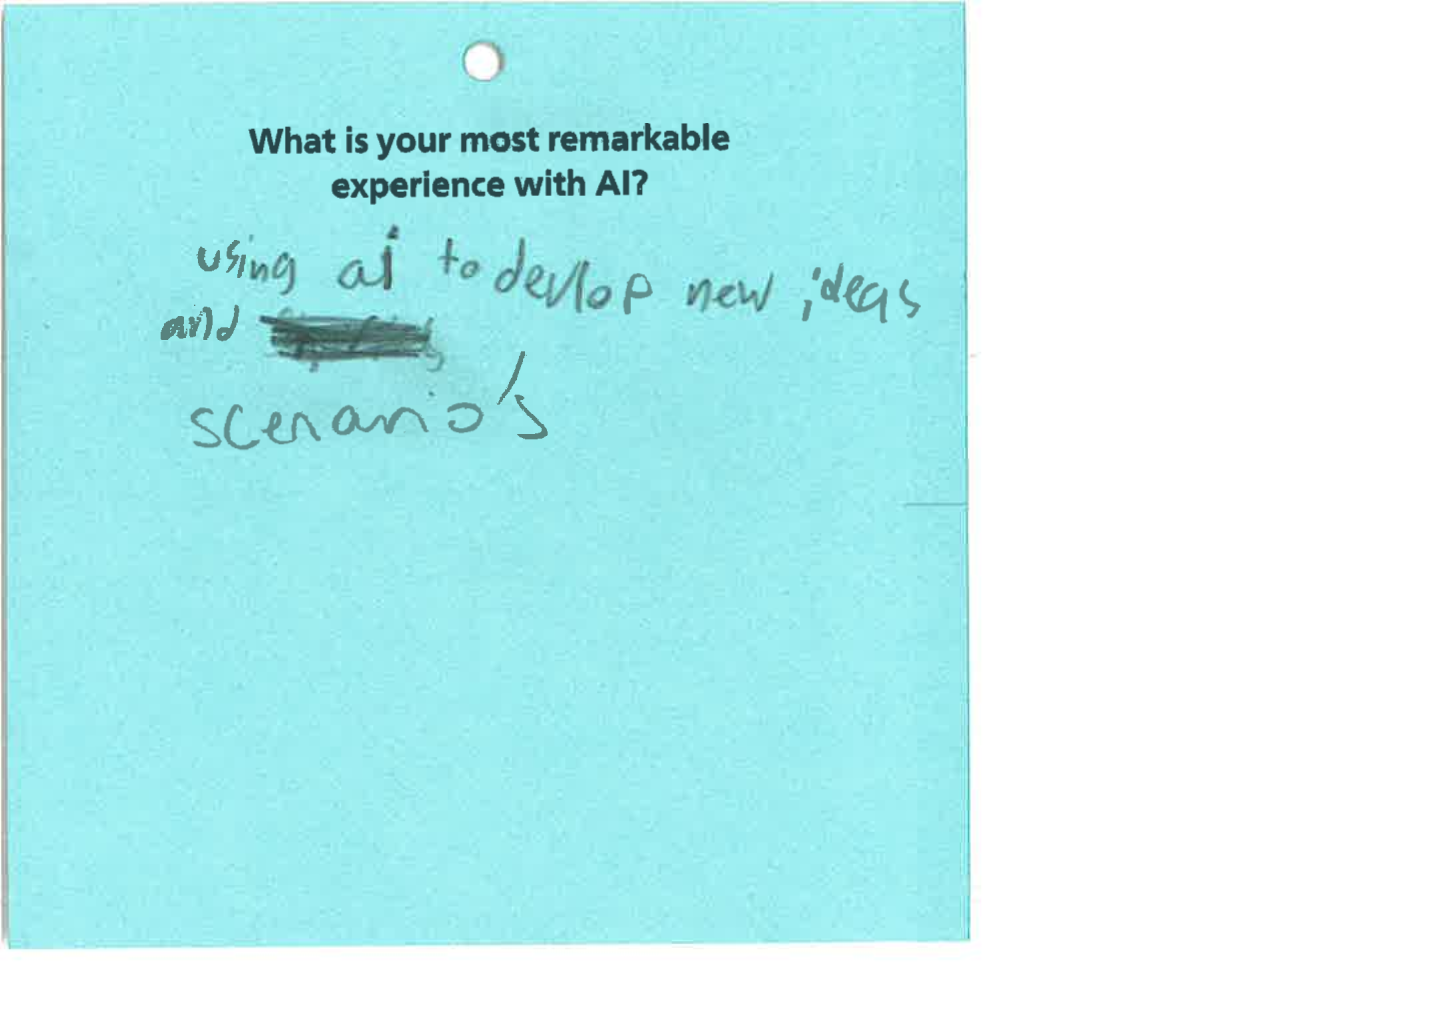 What is your most remarkable
experience with AI?
using ai to devlop new ideas
and
scenario's